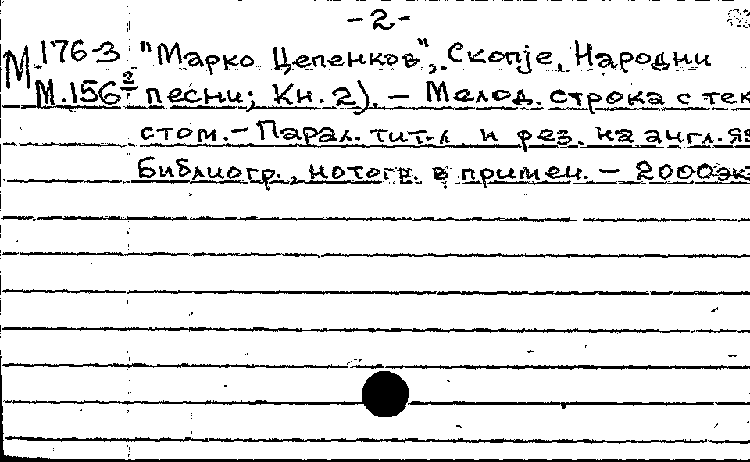 -2-
М.176-3 "Марко Цепенков", Скопје, Народни
М.156 2/1 песни; Кн. 2). – Мелод. строка с тек
стом. – Парал. тит. л. и рез. на англ. яз
Библиогр., нотогр. в примеч. – 2000 эк